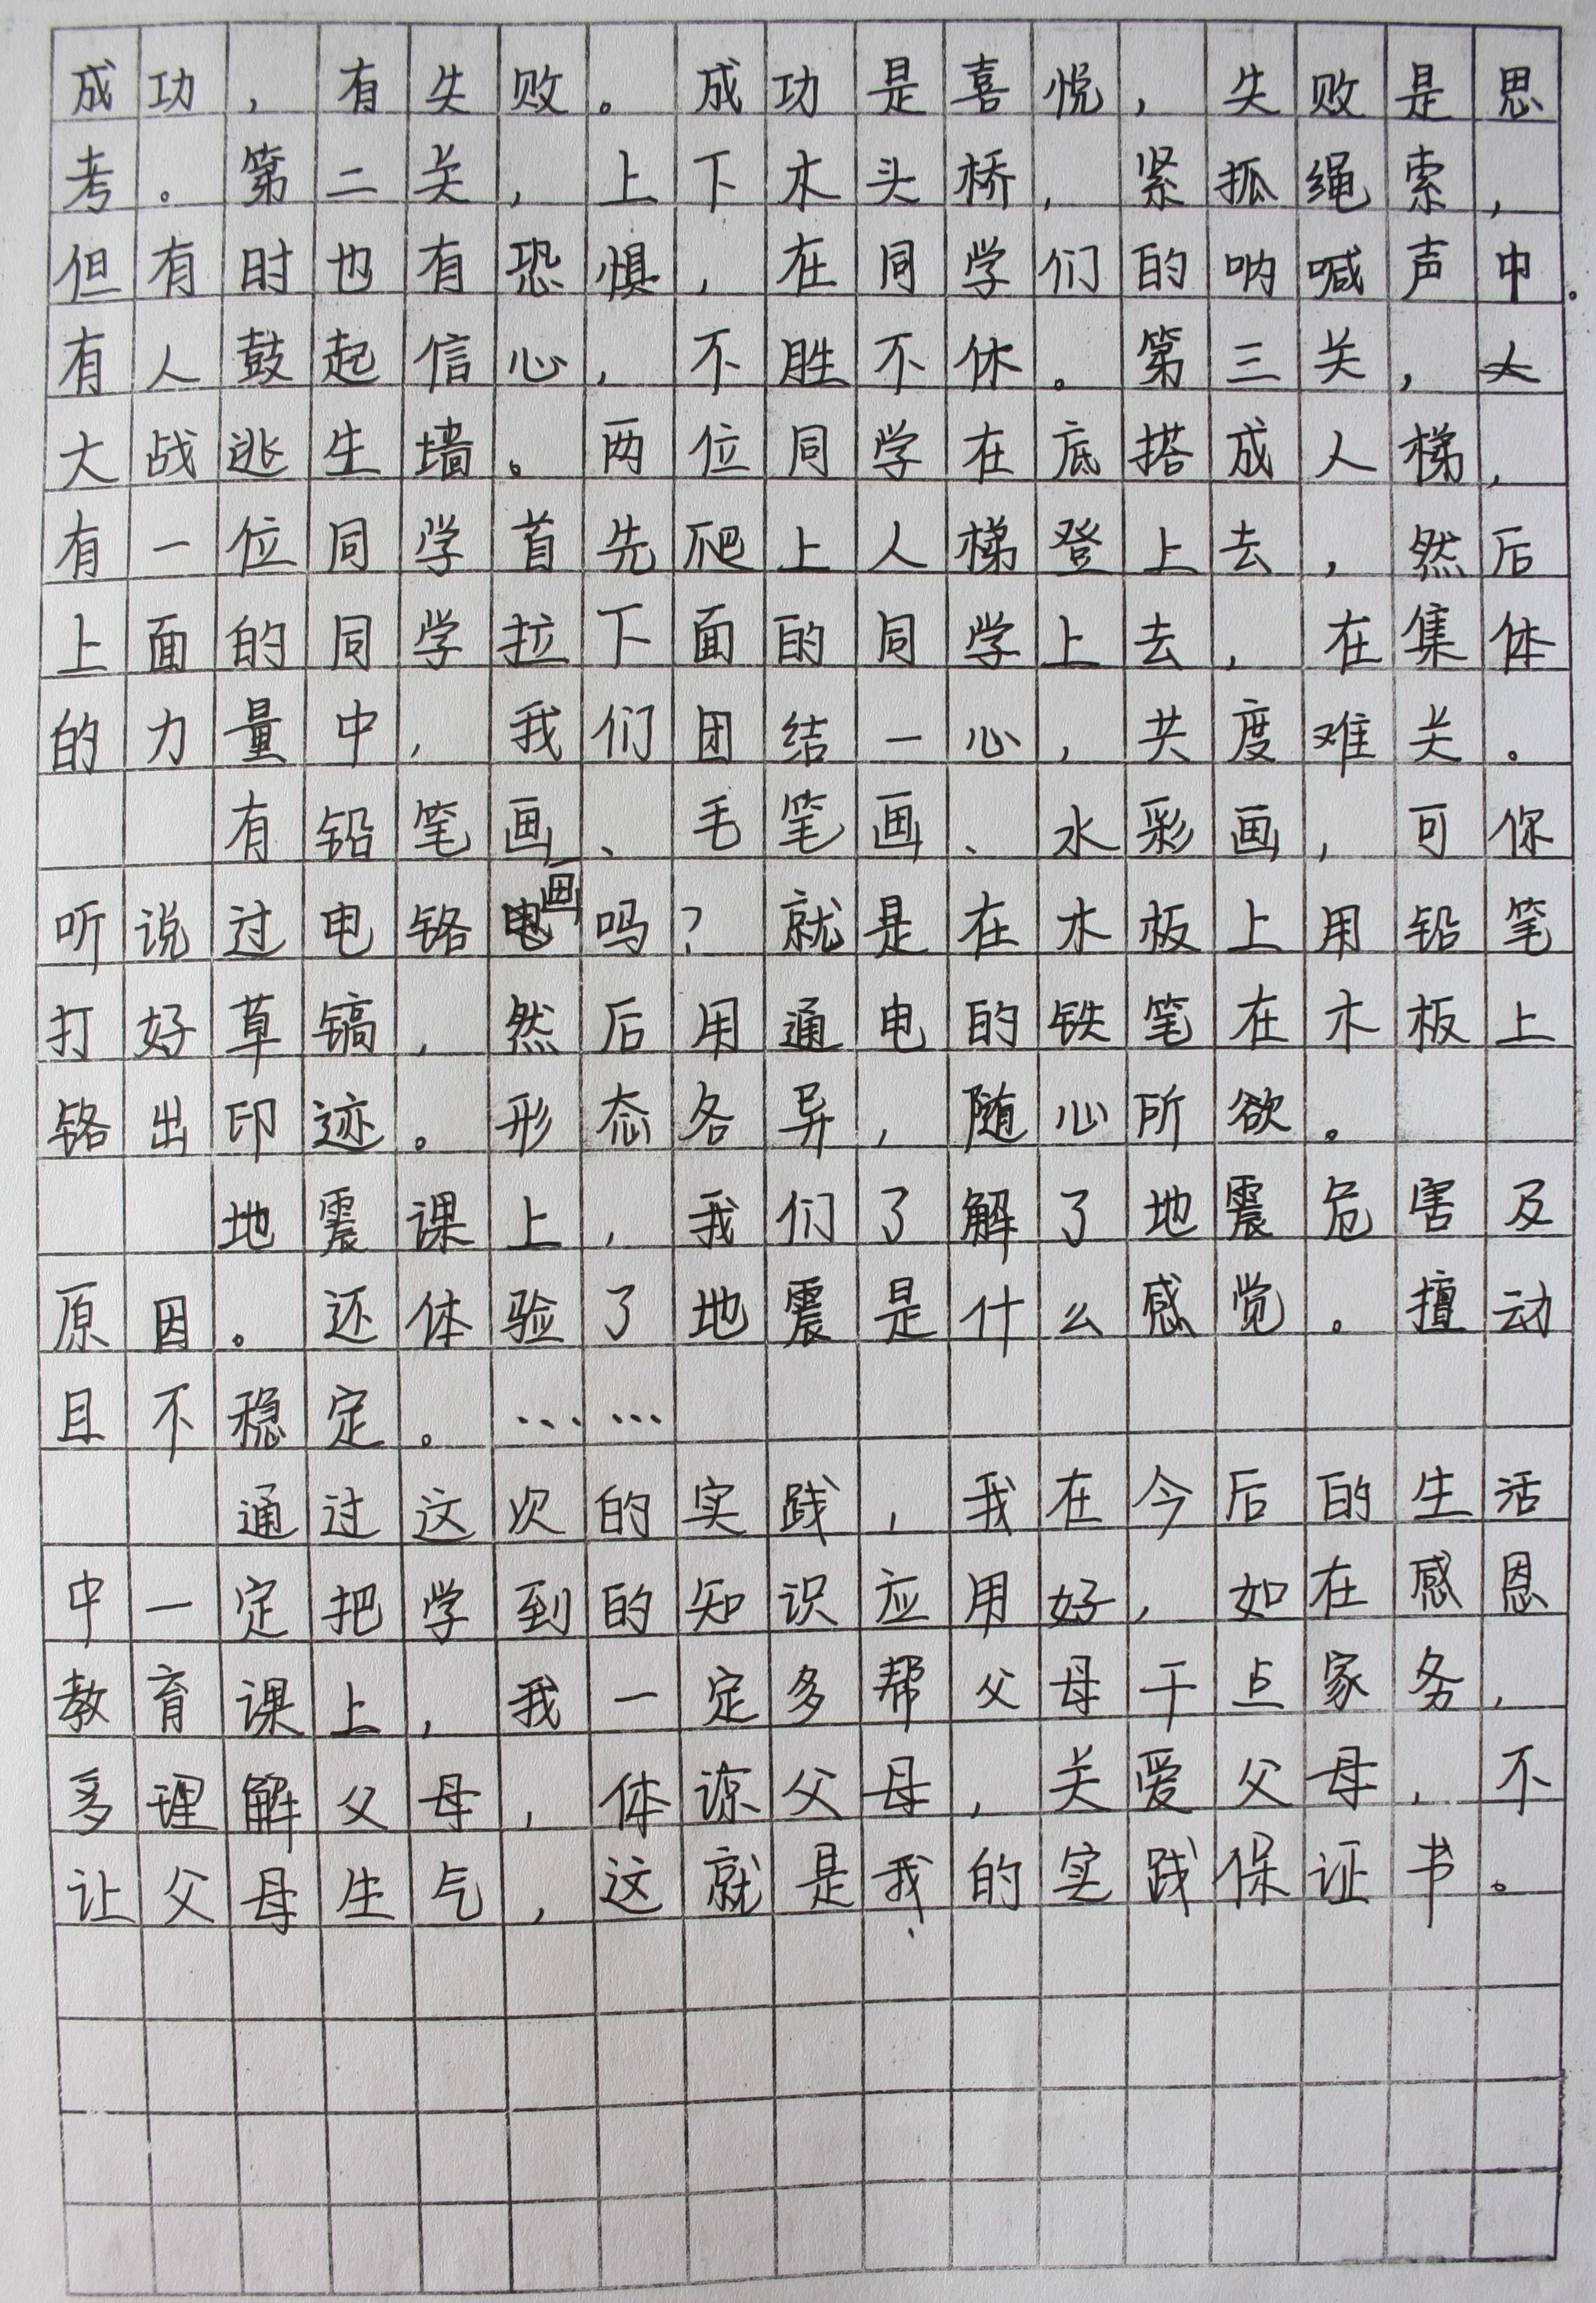 成功，有失败。成功是喜悦，失败是思
考。第二关，上下木头桥，紧抓绳索，
但有时也有恐惧，在同学们的呐喊声中。
有人鼓起信心，不胜不休。第三关，
大战逃生墙。两位同学在底搭成人梯，
有一位同学首先爬上人梯登上去，然后
上面的同学拉下面的同学上去，在集体
的力量中，我们团结一心，共度难关。
有铅笔画、毛笔画、水彩画，可你
听说过电铬画吗？就是在木板上用铅笔
打好草镐，然后用通电的铁笔在木板上
铬出印迹。形态各异，随心所欲。
地震课上，我们了解了地震危害及
原因。还体验了地震是什么感觉。擅动
且不稳定。……
通过这次的实践，我在今后的生活
中一定把学到的知识应用好，如在感恩
教育课上，我一定多帮父母干点家务，
多理解父母，体谅父母，关爱父母，不
让父母生气，这就是我的实践保证书。